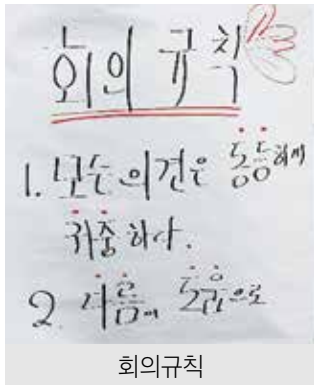 회의 규칙
1. 모든 의견은 동등하게
귀중하다.
2. 다음에 도움으로
회의규칙